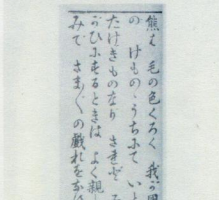 熊は 毛の色くろく 我が国
の けもの うちにて いと
たけきものなり されど
がひにするときは よく親し
みて さま〲の戯れをな